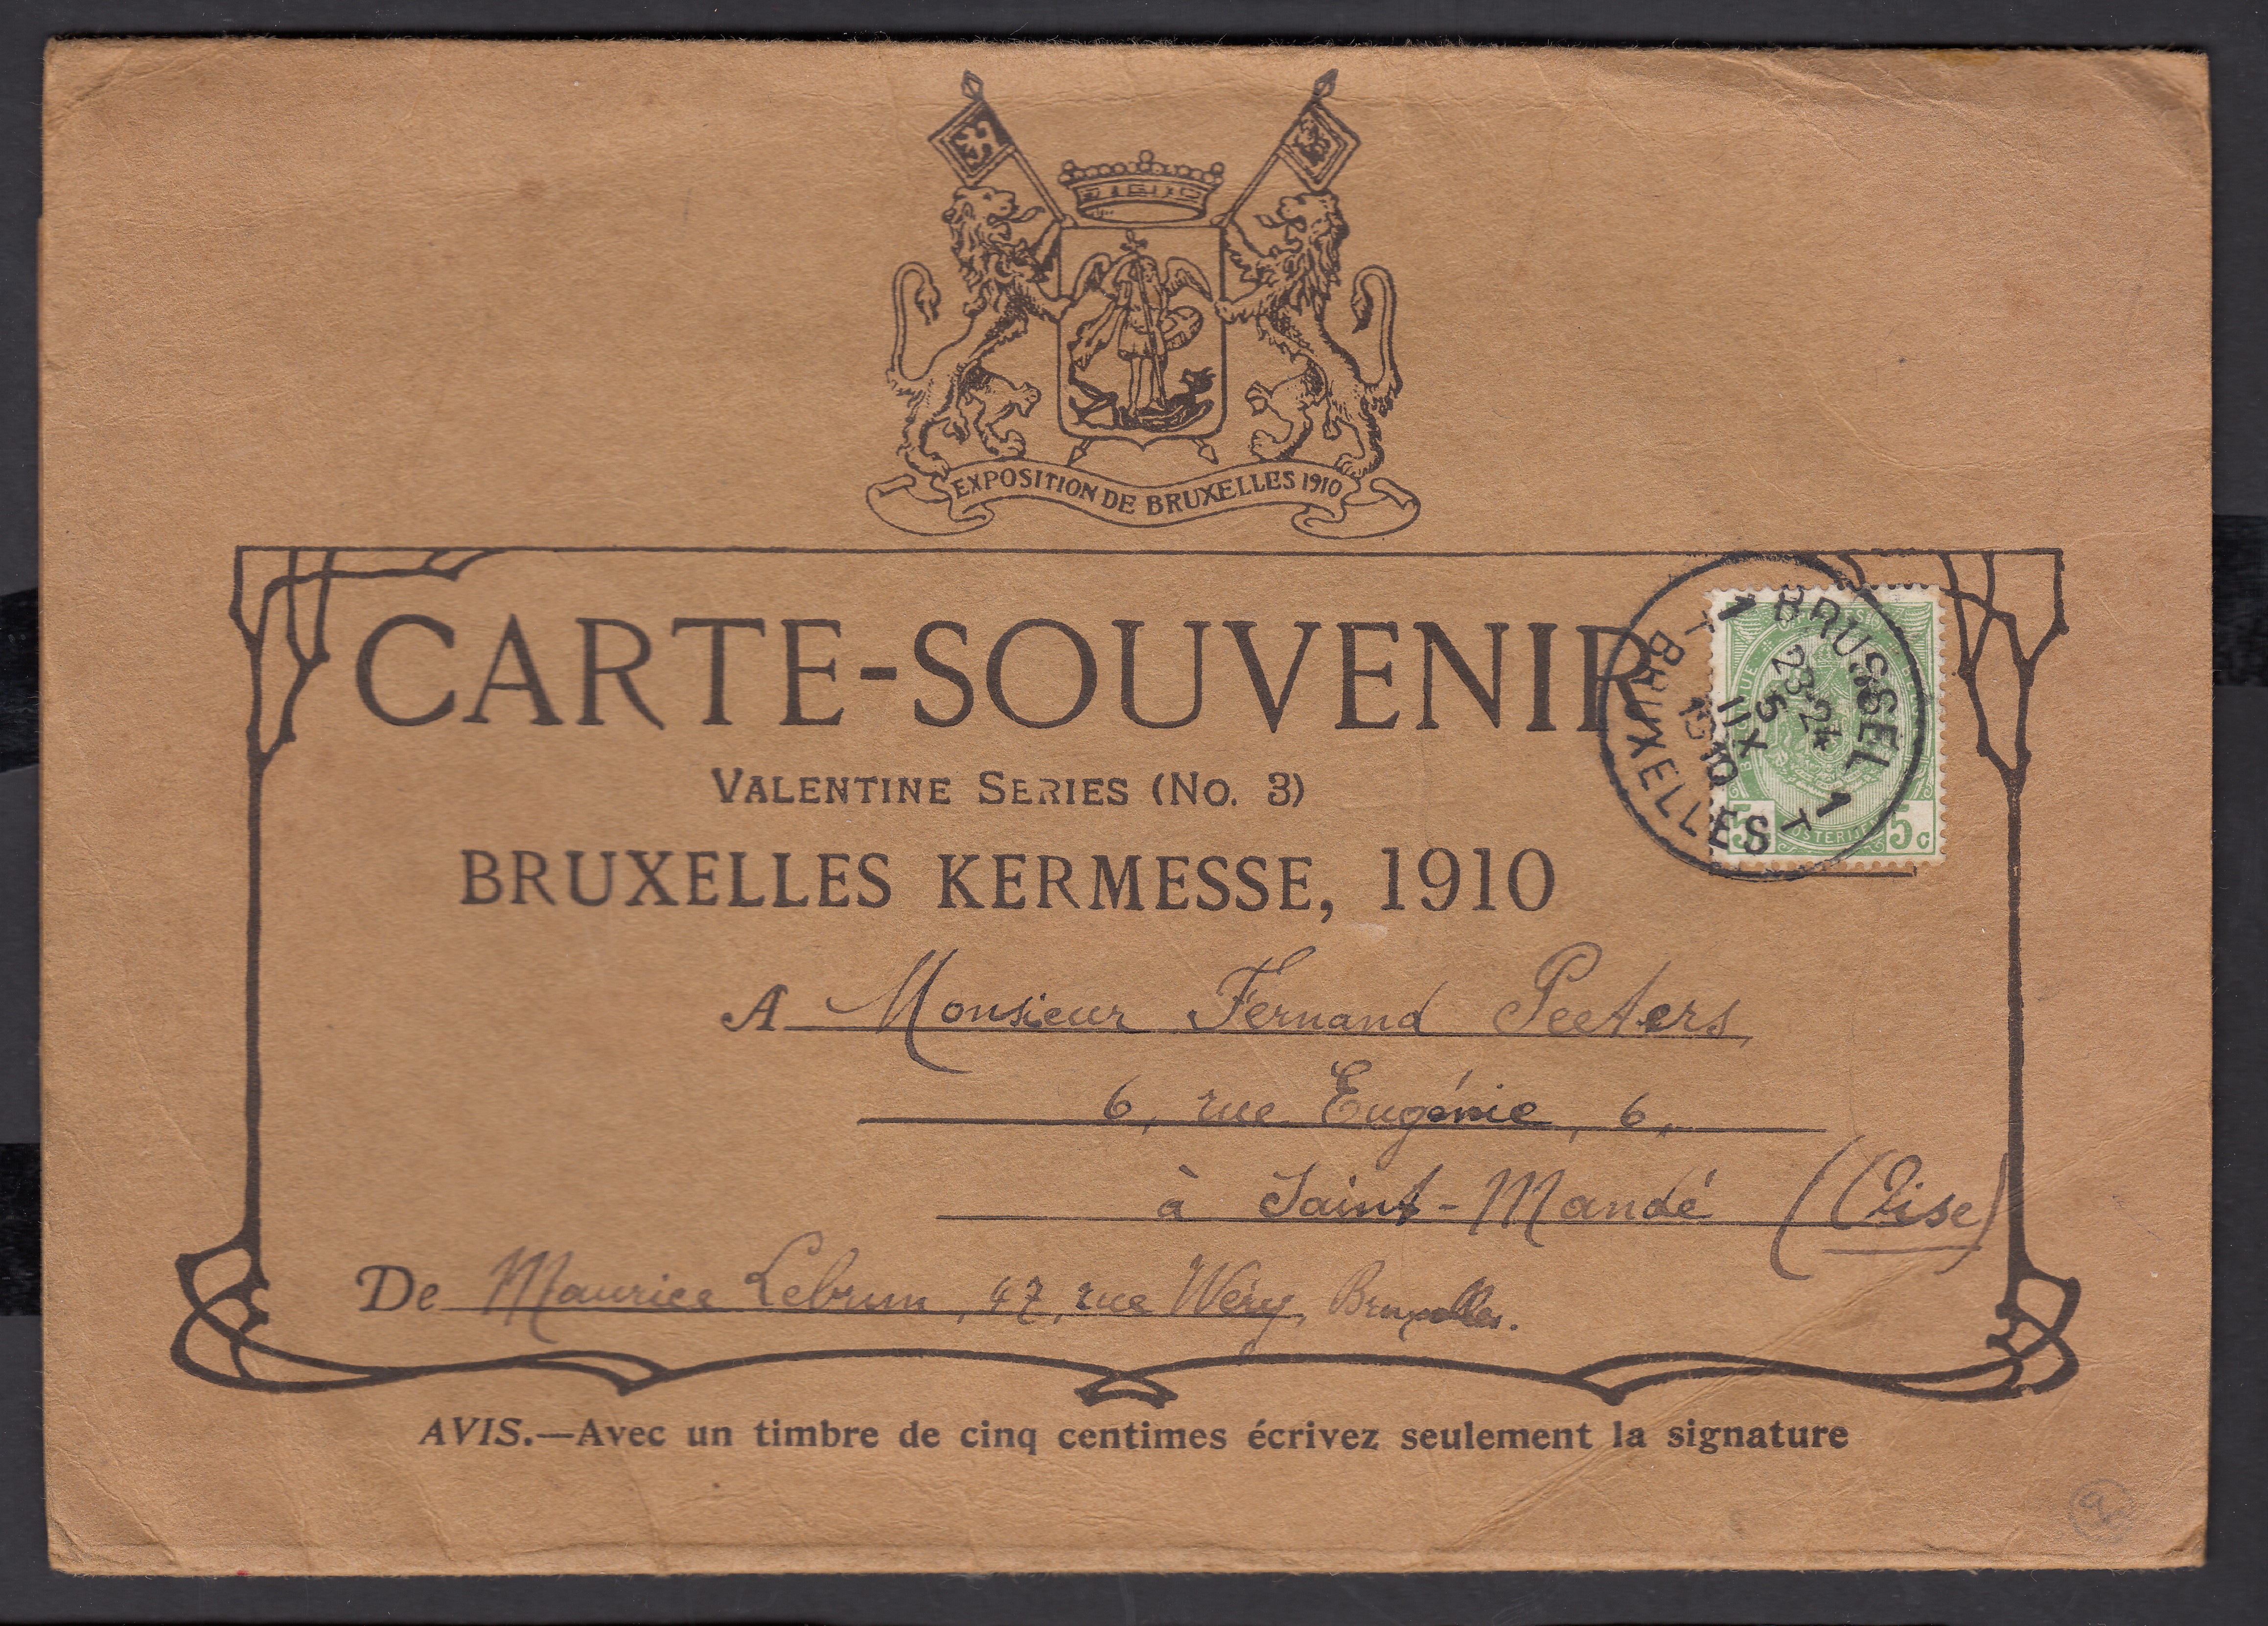 EXPOSITION DE BRUXELLES 1910
CARTE-SOUVENIR
VALENTINE SERIES (No. 3)
BRUXELLES KERMESSE, 1910
1 BRUSSEL 1
T BRUXELLES T
23-24
5 XII
1910
5 5c
A Monsieur Fernand Peeters,
6, rue Eugénie, 6,
à Saint-Mandé (Oise)
De Maurice Lebrun, 47, rue Wéry, Bruxelles.
AVIS.—Avec un timbre de cinq centimes écrivez seulement la signature